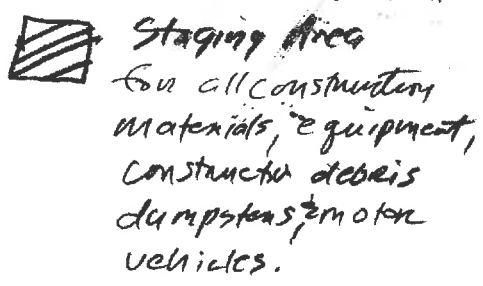 Staging Area
for all construction
materials, equipment,
construction debris
dumpsters, & motor
vehicles.